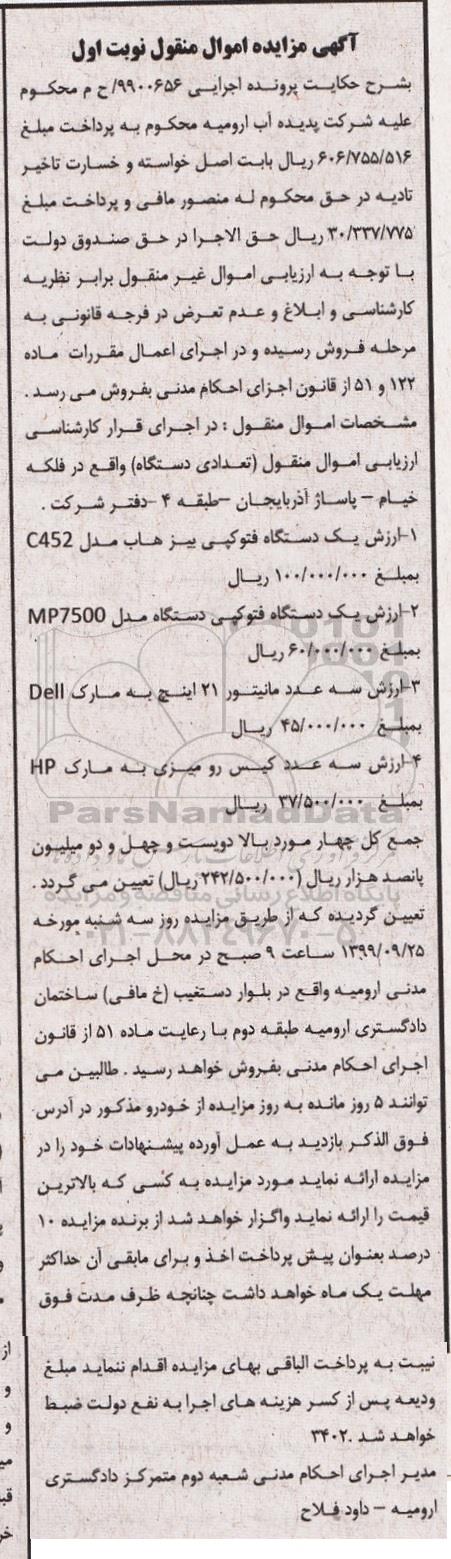 آگهی مزایده اموال منقول نوبت اول
بشرح حکایت پرونده اجرایی ۹۹۰۰۶۵۶/ح م محکوم
علیه شرکت پدیده آب ارومیه محکوم به پرداخت مبلغ
۶۰۶/۷۵۵/۵۱۶ ریال بابت اصل خواسته و خسارت تاخیر
تادیه در حق محکوم له منصور مافی و پرداخت مبلغ
۳۰/۳۳۷/۷۷۵ ریال حق الاجرا در حق صندوق دولت
با توجه به ارزیابی اموال غیر منقول برابر نظریه
کارشناسی و ابلاغ و عدم تعرض در فرجه قانونی به
مرحله فروش رسیده و در اجرای اعمال مقررات ماده
۱۲۲ و ۵۱ از قانون اجرای احکام مدنی بفروش می رسد .
مشخصات اموال منقول : در اجرای قرار کارشناسی
ارزیابی اموال منقول (تعدادی دستگاه) واقع در فلکه
خیام – پاساژ آذربایجان –طبقه ۴ -دفتر شرکت .
۱-ارزش یک دستگاه فتوکپی بیز هاب مدل C452
بمبلغ ۱۰۰/۰۰۰/۰۰۰ ریال
۲-ارزش یک دستگاه فتوکپی دستگاه مدل MP7500
بمبلغ ۶۰/۰۰۰/۰۰۰ ریال
۳-ارزش سه عدد مانیتور ۲۱ اینچ به مارک Dell
بمبلغ ۴۵/۰۰۰/۰۰۰ ریال
۴-ارزش سه عدد کیس رو میزی به مارک HP
بمبلغ ۳۷/۵۰۰/۰۰۰ ریال
ParsNamadData
جمع کل چهار مورد بالا دویست و چهل و دو میلیون
پانصد هزار ریال (۲۴۲/۵۰۰/۰۰۰ ریال) تعیین می گردد .
پایگاه اطلاع رسانی مناقصه و مزایده
تعیین گردیده که از طریق مزایده روز سه شنبه مورخه
۰۲۱-۸۸۳۴۹۶۷۰-۵
۱۳۹۹/۰۹/۲۵ ساعت ۹ صبح در محل اجرای احکام
مدنی ارومیه واقع در بلوار دستغیب (خ مافی) ساختمان
دادگستری ارومیه طبقه دوم با رعایت ماده ۵۱ از قانون
اجرای احکام مدنی بفروش خواهد رسید . طالبین می
توانند ۵ روز مانده به روز مزایده از خودرو مذکور در آدرس
فوق الذکر بازدید به عمل آورده پیشنهادات خود را در
مزایده ارائه نماید مورد مزایده به کسی که بالاترین
قیمت را ارائه نماید واگزار خواهد شد از برنده مزایده ۱۰
درصد بعنوان پیش پرداخت اخذ و برای مابقی آن حداکثر
مهلت یک ماه خواهد داشت چنانچه ظرف مدت فوق
نیبت به پرداخت الباقی بهای مزایده اقدام ننماید مبلغ
ودیعه پس از کسر هزینه های اجرا به نفع دولت ضبط
خواهد شد .۳۴۰۲
مدیر اجرای احکام مدنی شعبه دوم متمرکز دادگستری
ارومیه – داود فلاح